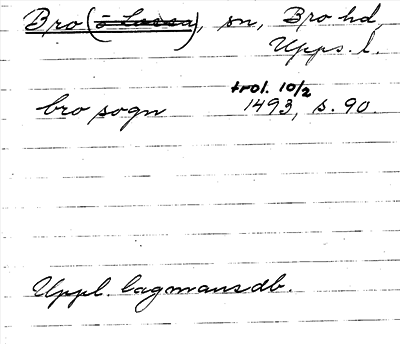 Bro (o Lossa), sn, Bro hd,
Upps. l.
trol. 10/2
bro sogn 1493, s. 90.
Uppl. lagmansdb.